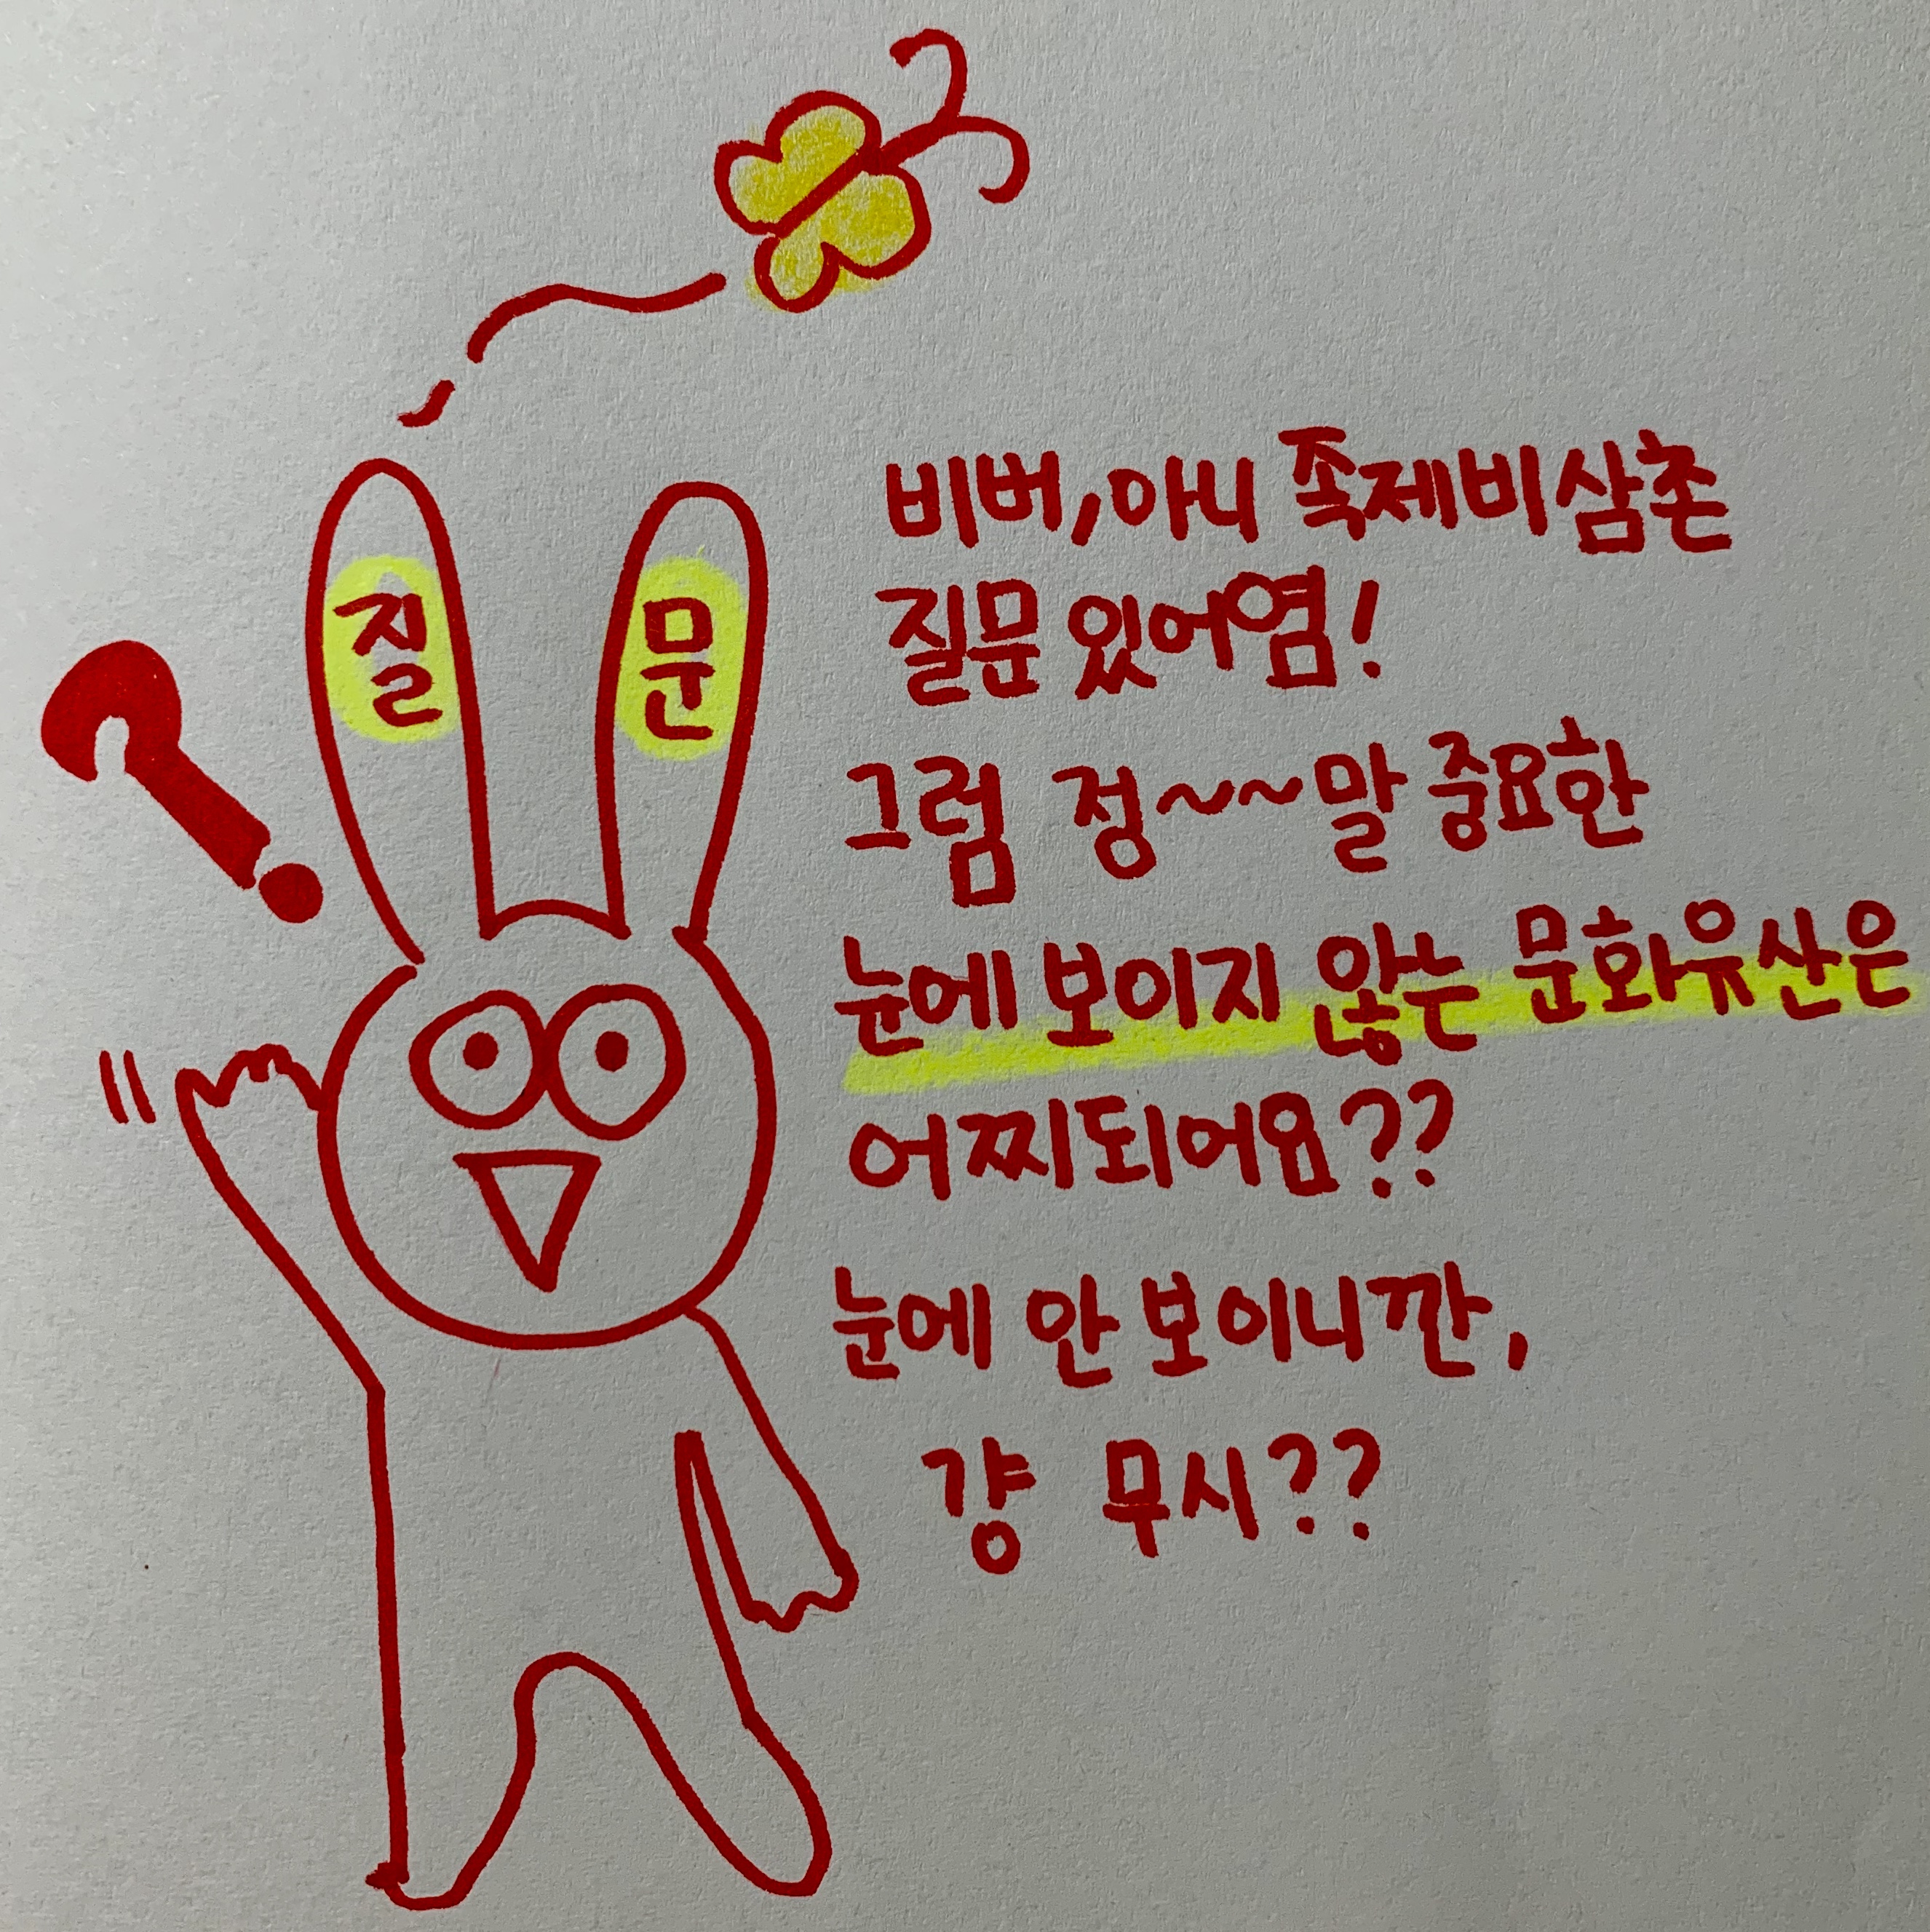 질 문
비버, 아니 족제비삼촌
질문 있어염!
그럼 정~~말 중요한
눈에 보이지 않는 문화유산은
어찌되어요??
눈에 안 보이니깐,
걍 무시??